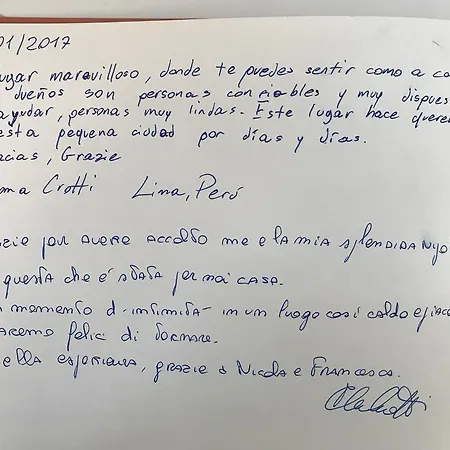 01/2017
lugar maravilloso, donde te puedes sentir como a ca
dueños son personas confiables y muy dispues
ayudar, personas muy lindas. Este lugar hace querer
esta pequena ciudad por días y días.
acias, Grazie
Crotti Lima, Perú
zie per avere accolto me e la mia splendida
questa che è stata per noi casa.
momento d'intimità in un luogo così caldo e piac
aremo felici di tornare.
ella esperienza, grazie a Nicola e Francesca.